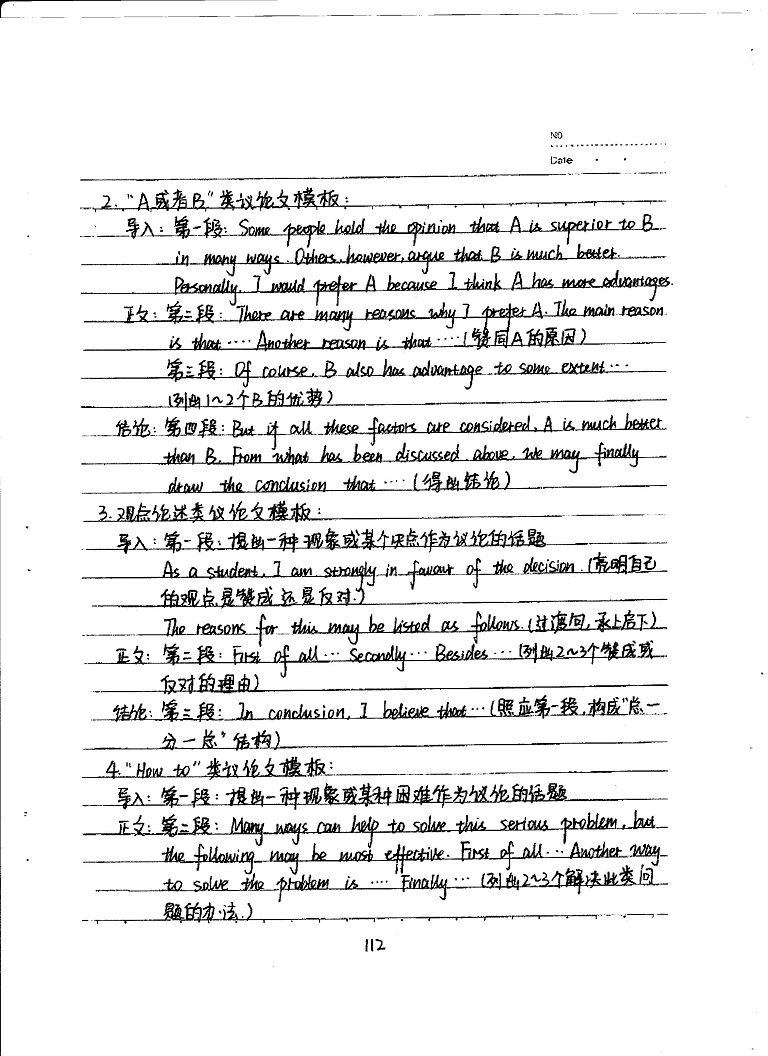 NO
Date
2. "A或者B"类议论文模板：
导入：第一段：Some people hold the opinion that A is superior to B
in many ways. Others, however, argue that B is much better.
Personally, I would prefer A because I think A has more advantages.
正文：第二段：There are many reasons why I prefer A. The main reason
is that ···· Another reason is that ····（赞同A的原因）
第三段：Of course, B also has advantage to some extent···
（列出1~2个B的优势）
结论：第四段：But if all these factors are considered, A is much better
than B. From what has been discussed above, we may finally
draw the conclusion that ····（得出结论）
3.观点论述类议论文模板：
导入：第一段：提出一种现象或某个决点作为议论的话题
As a student, I am strongly in favour of the decision.（亮明自己
的观点是赞成还是反对.）
The reasons for this may be listed as follows.（过渡句,承上启下）
正文：第二段：First of all··· Secondly··· Besides ···（列出2~3个赞成或
反对的理由）
结论：第三段：In conclusion, I believe that···（照应第一段,构成"总一
分一总"结构）
4."How to"类议论文模板：
导入：第一段：提出一种现象或某种困难作为议论的话题
正文：第二段：Many ways can help to solve this serious problem, but
the following may be most effective. First of all··· Another way
to solve the problem is ···· Finally···（列出2~3个解决此类问
题的办法.）
112